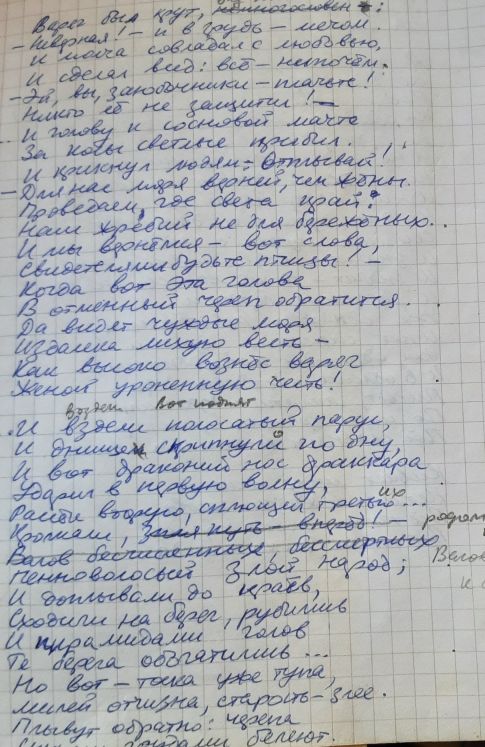 Варяг был крут, единогословен:
– Неверная! – и в грудь – мечом.
И мачта совладал с любовью,
И сделал вид: всё – нипочём.
– Эй, вы, занобочники – плачьте!
Никто её не защитил! –
И голову к сосновой мачте
За косы светлые прибил.
И крикнул людям: Отплывай!
– Для нас моря верней, чем жёны.
Проведаем, где света край!
Наш жребий не для бережёных..
И мы вернёмся – вот слова,
Свидетелями будьте птицы! –
Когда вот эта голова
В отменный череп обратится.
Да видят чуждые моря
Издалека лихую весть –
Как высоко вознёс варяг
Женой уроненную честь!
Воздет Вот поднят
И вздели полосатый парус,
И днищем скрипнули по дну,
И вот драконий нос драккара
Ударил в первую волну,
Разбил вторую, сплющил третью... их
Кромкали, Злая путь – вперёд! –
Валов бесчисленных, бессмертных
Пенноволосый злой народ;
И доплывали до краёв,
Сходили на берег, рубились
И пирамидами голов
Те берега обогатились...
Но вот – тоска уже тупа,
Милей отчизна, старость – злее.
Плывут обратно: черепа
белеют.